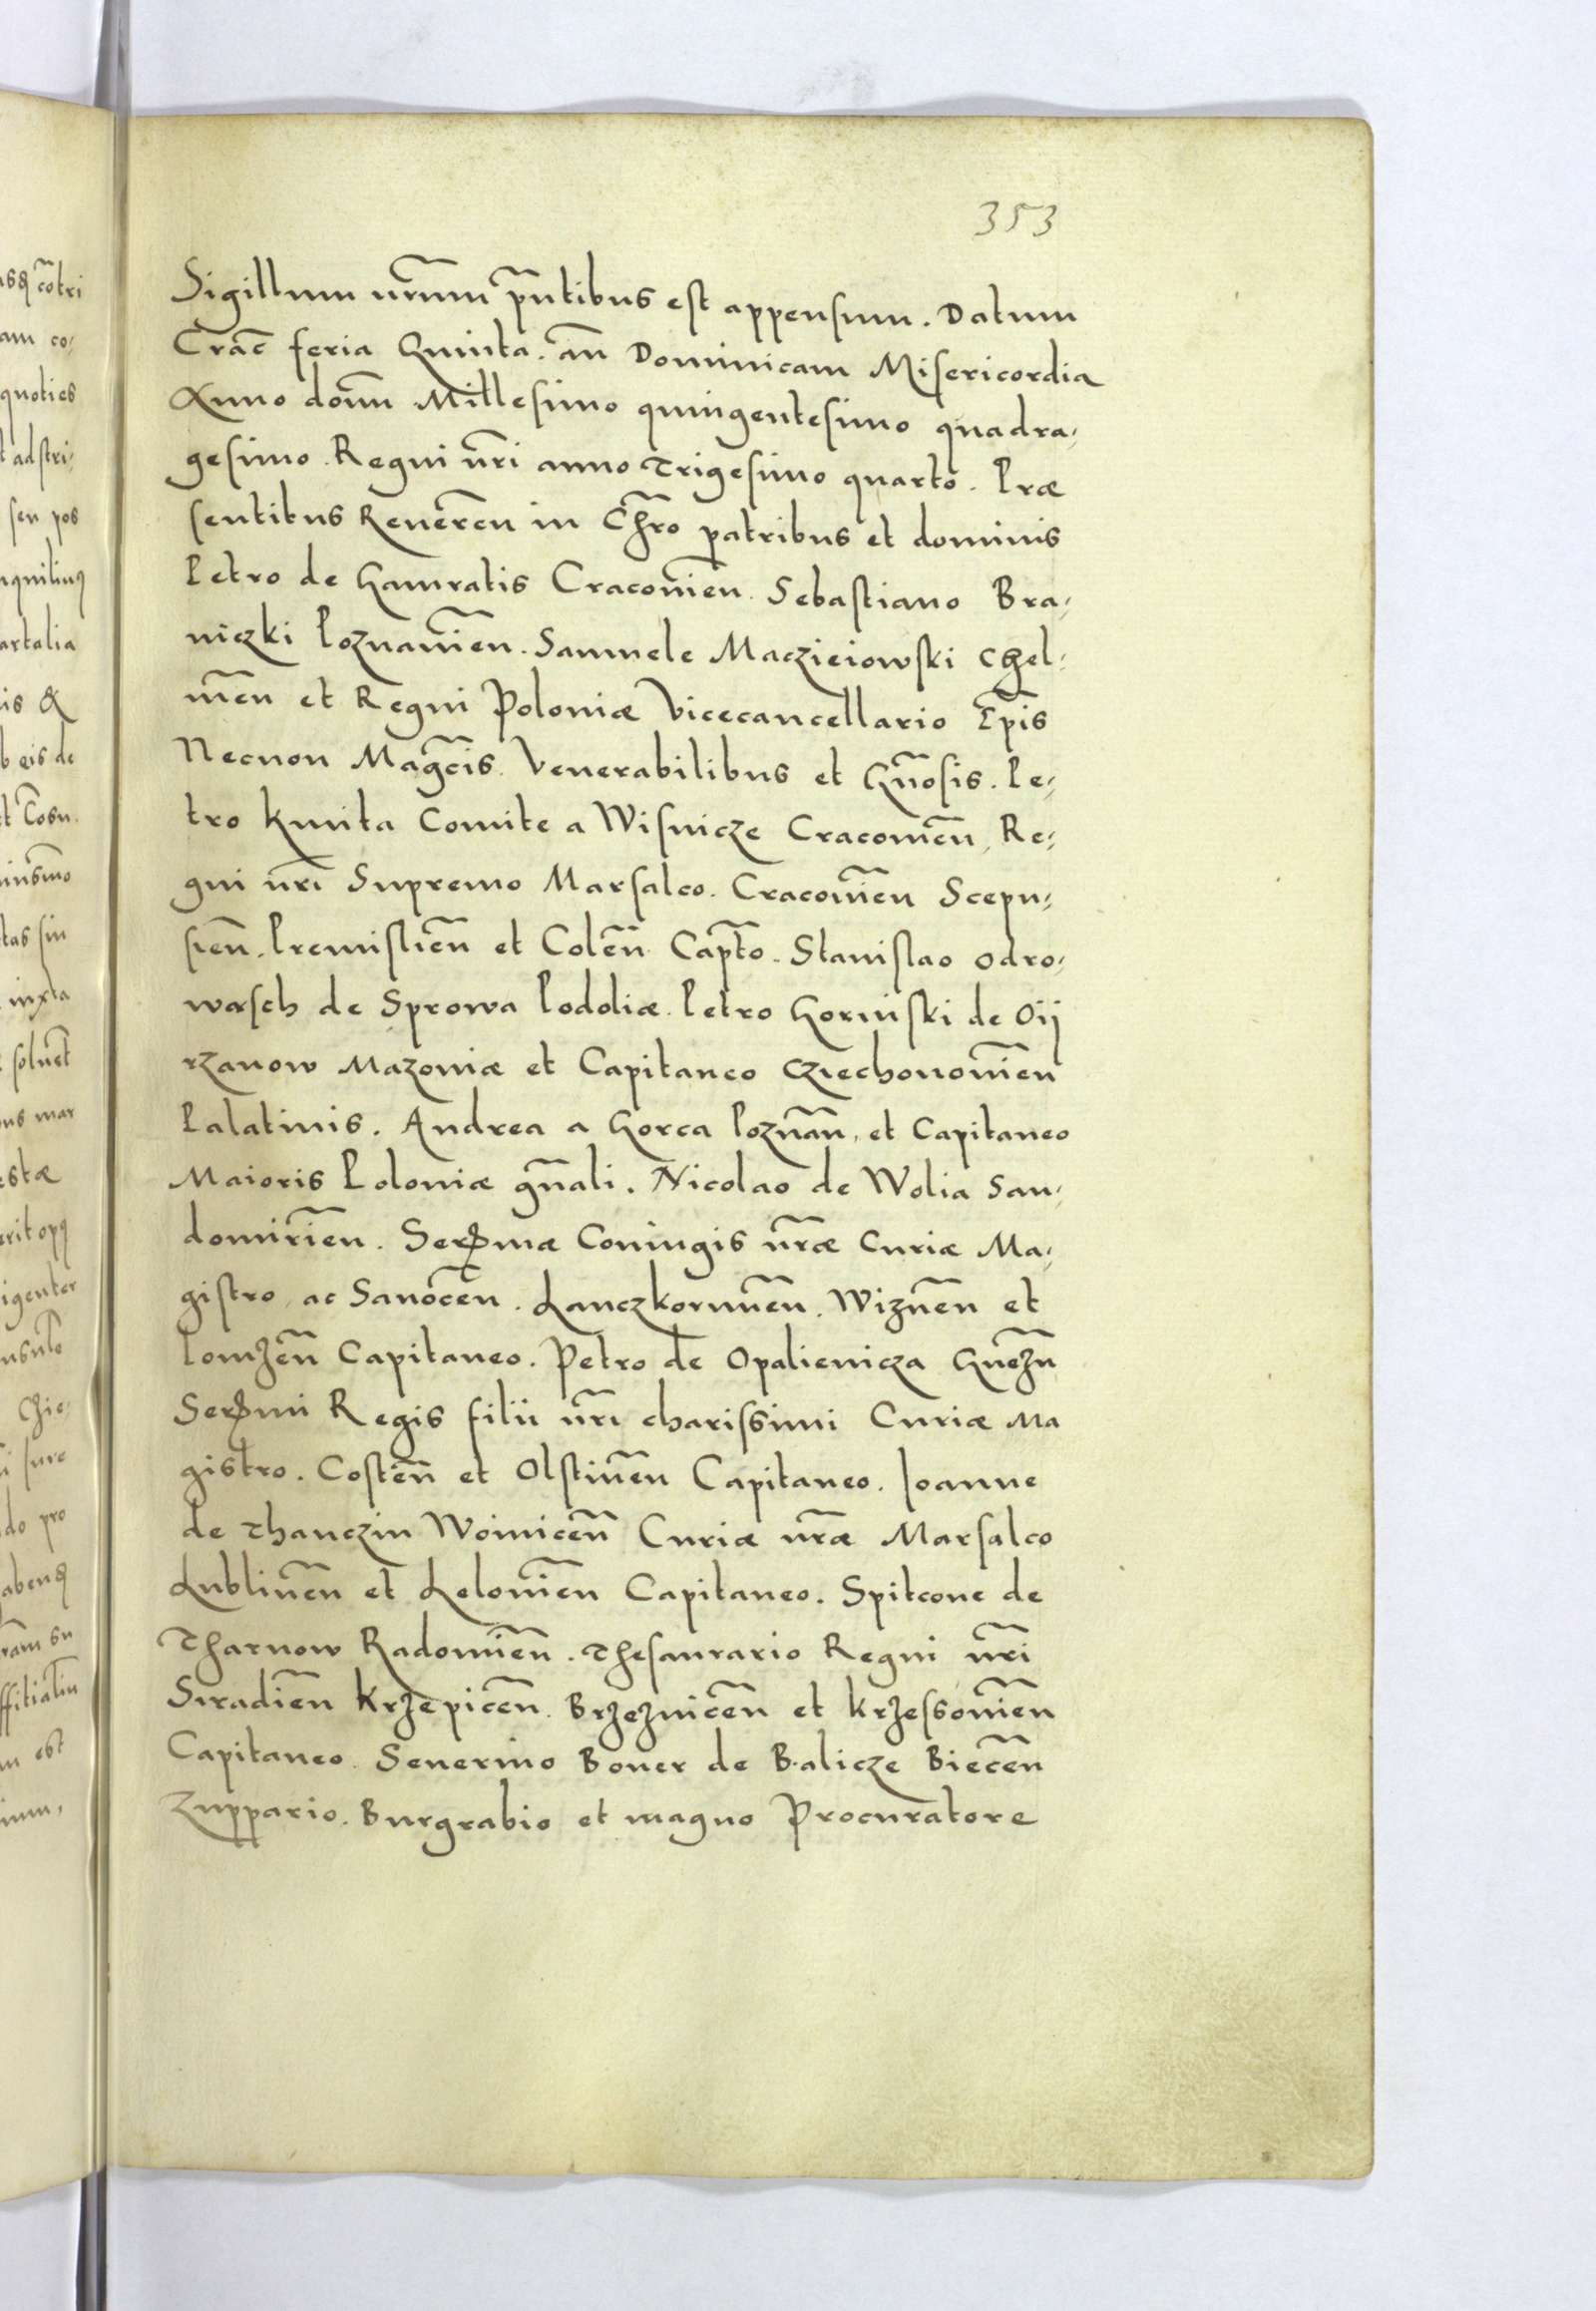 353
Sigillum nr̃um pñtibus est appensum. Datum
Crac̃ feria Quinta. añ Dominicam Misericordia
Anno domñ Millesimo quingentesimo quadra-
gesimo. Regni nr̃i anno Trigesimo quarto. Præ
sentibus Reueren̄ in Chr̃o patribus et dominis
Petro de Gamratis Cracouien̄. Sebastiano Bra-
niczki Poznanien̄. Samuele Maczieiowski Chel-
men̄ et Regni Poloniæ Vicecancellario Ep̃is
Necnon Magc̃is. Venerabilibus et Gñosis. Pe-
tro Kmita Comite a Wisnicze Cracouien̄, Re-
gni nr̃i Supremo Marsalco. Cracouien̄ Scepu-
sien̄. Premislien̄ et Colen̄ Capt̃o. Stanislao Odro-
wasch de Sprowa Podoliæ. Petro Gorinski de Oij
rzanow Mazoviæ et Capitaneo Cziechonouien̄
Palatinis. Andrea a Gorca Poznañ, et Capitaneo
Maioris Poloniæ gñali. Nicolao de Wolia San-
domirien̄. Serꝰmæ Coniugis nr̃æ Curiæ Ma-
gistro, ac Sanocen̄. Lanczkorunen̄. Wiznen̄ et
Lomzen̄ Capitaneo. Petro de Opalienicza Gnezn̄
Serꝰmi Regis filii nr̃i charissimi Curiæ Ma
gistro. Costen̄ et Olstinen̄ Capitaneo. Ioanne
de Thanczin Woinicen̄ Curiæ nr̃æ Marsalco
Lublinen̄ et Lelouien̄ Capitaneo. Spitcone de
Tharnow Radomien̄. Thesaurario Regni nr̃i
Siradien̄ Krzepicen̄. Brzeznicen̄ et Krzessouien̄
Capitaneo. Seuerino Boner de Balicze Biecen̄
Zuppario. Burgrabio et magno Procuratore